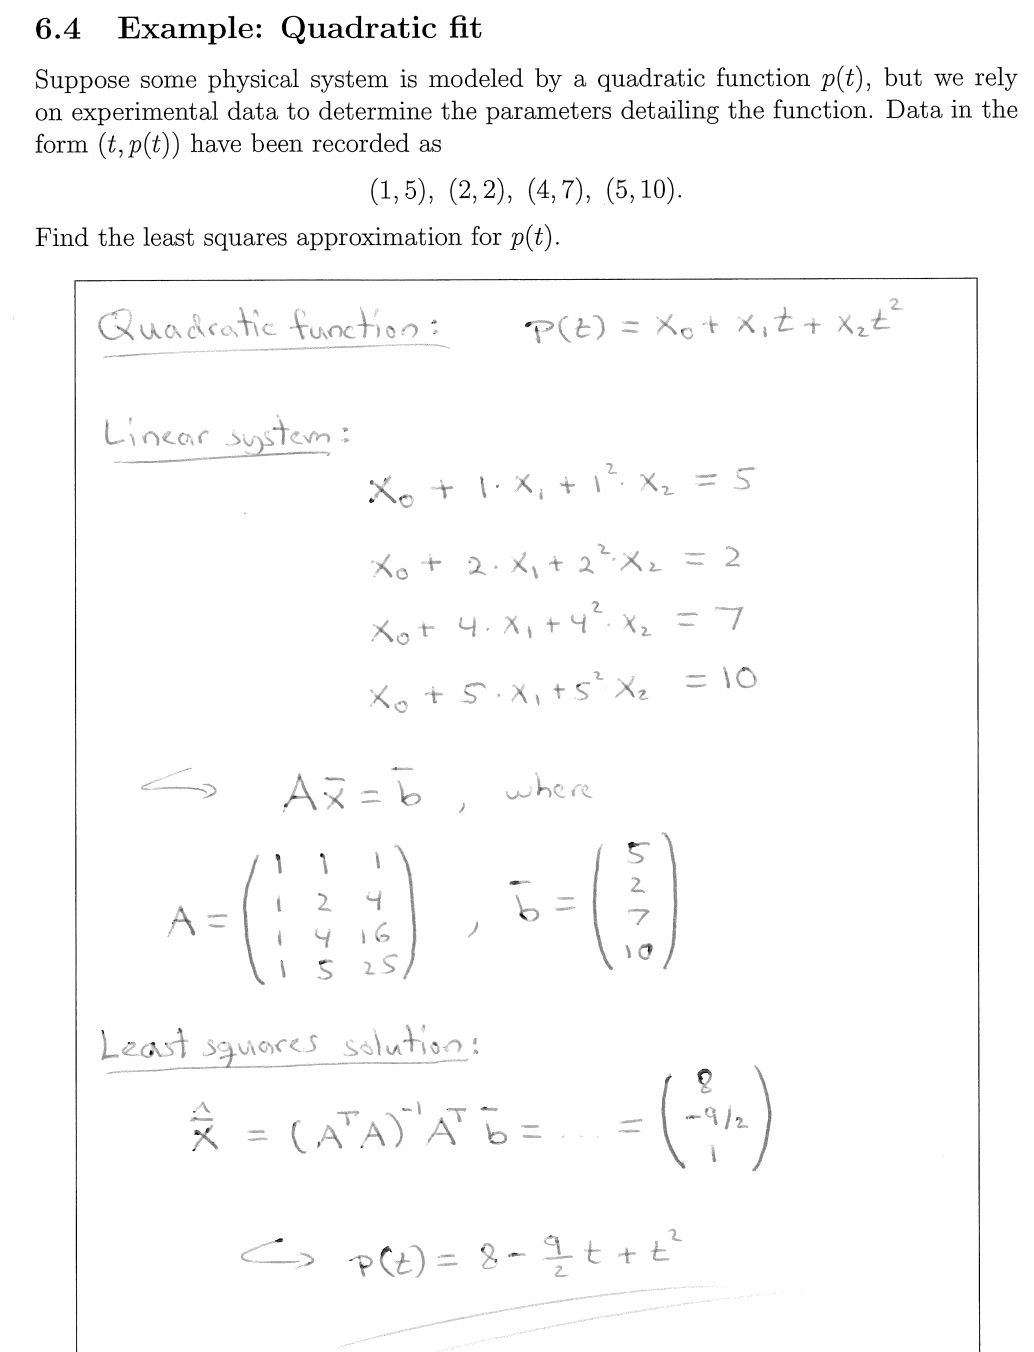 6.4 Example: Quadratic fit
Suppose some physical system is modeled by a quadratic function p(t), but we rely
on experimental data to determine the parameters detailing the function. Data in the
form (t, p(t)) have been recorded as
(1, 5), (2, 2), (4, 7), (5, 10).
Find the least squares approximation for p(t).
Quadratic function: p(t) = x₀ + x₁t + x₂t²
Linear system:
x₀ + 1·x₁ + 1²·x₂ = 5
x₀ + 2·x₁ + 2²·x₂ = 2
x₀ + 4·x₁ + 4²·x₂ = 7
x₀ + 5·x₁ + 5² x₂ = 10
↪ Ax̄ = b̄, where
A = (1 1 1
1 2 4
1 4 16
1 5 25), b̄ = (5
2
7
10)
Least squares solution:
x̄̂ = (AᵀA)⁻¹Aᵀ b̄ = .... = (8
-9/2
1)
↪ p(t) = 8 - 9/2 t + t²